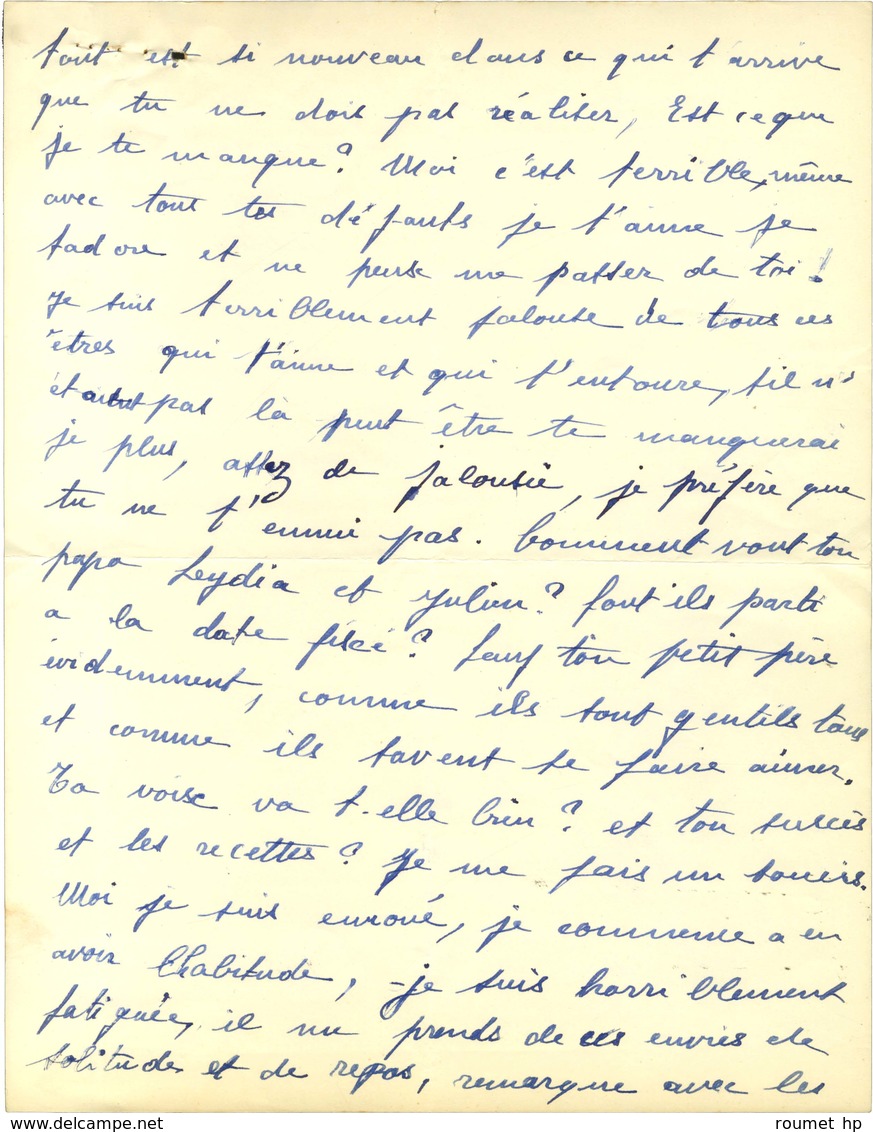 tout est si nouveau dans ce qui t'arrive
que tu ne dois pas réaliser, Est ce que
je te manque? Moi c'est terrible, même
avec tout tes défauts je t'aime je
tadore et ne peuse me passer de toi!
Je suis terriblement jalouse de tous ces
êtres qui t'aime et qui t'entoure, s'il n'
étaient pas là peut être te manquerai
je plus, assez de jalousie, je préfère que
tu ne t'ennui pas. Comment vont ton
papa Leydia et Julien? Sont ils parti
a la date fixé? Sauf ton petit père
évidemment, comme ils sont gentils tous
et comme ils savent se faire aimer.
Ta voise va t-elle bien? et ton succès
et les recettes? Je me fais un soucis.
Moi je suis enroué, je commence a en
avoir l'habitude, je suis horriblement
fatiguée, il me prends de ces envies de
solitude et de repos, remarque avec les
roumet hp